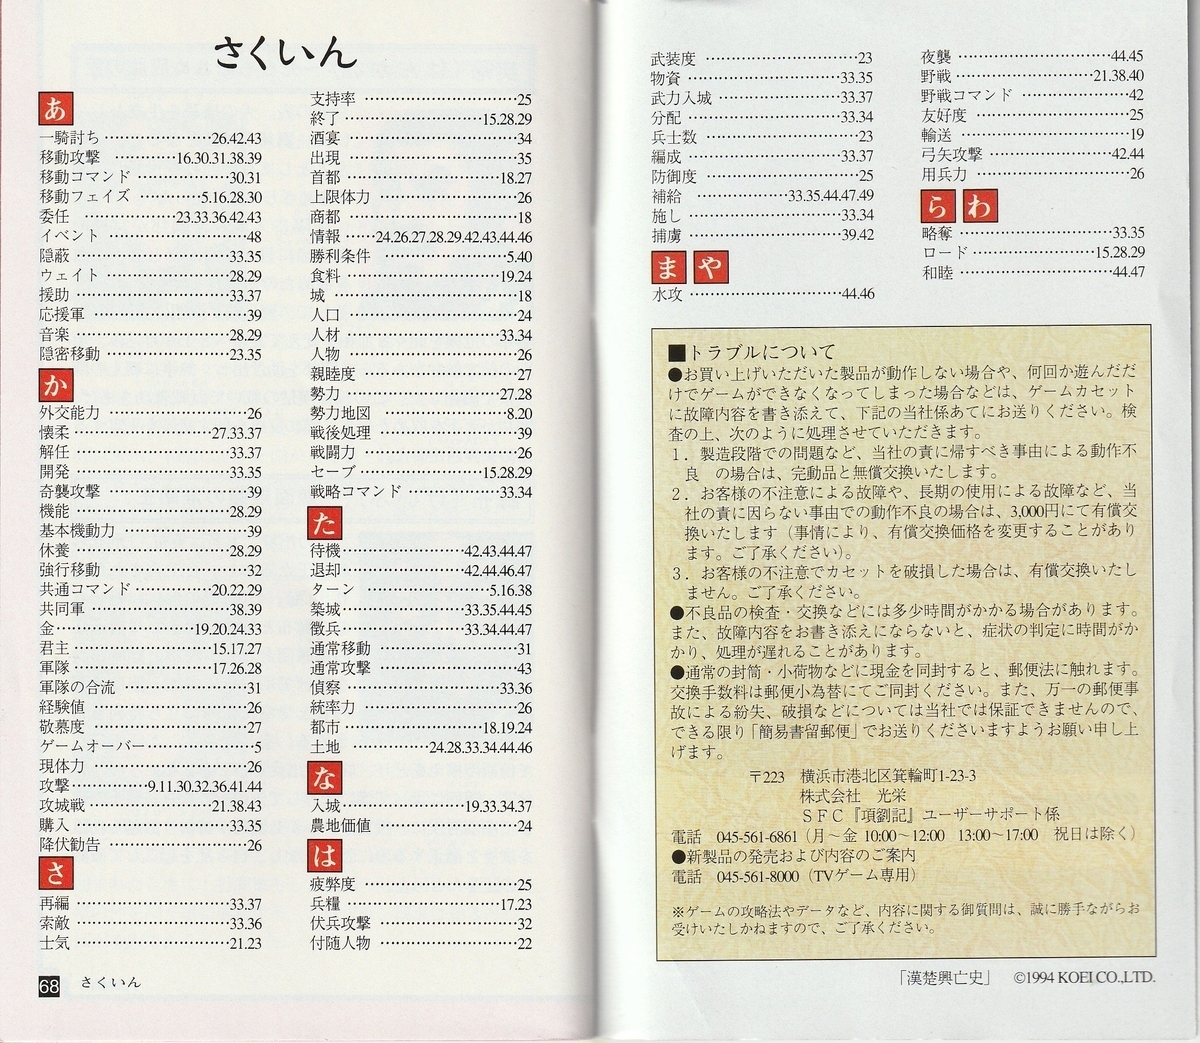 さくいん
あ
一騎討ち ……………26.42.43
移動攻撃 ……………16.30.31.38.39
移動コマンド ……………30.31
移動フェイズ ……………5.16.28.30
委任 ……………23.33.36.42.43
イベント ……………48
隠蔽 ……………33.35
ウェイト ……………28.29
援助 ……………33.37
応援軍 ……………39
音楽 ……………28.29
隠密移動 ……………23.35
か
外交能力 ……………26
懐柔 ……………27.33.37
解任 ……………33.37
開発 ……………33.35
奇襲攻撃 ……………39
機能 ……………28.29
基本機動力 ……………39
休養 ……………28.29
強行移動 ……………32
共通コマンド ……………20.22.29
共同軍 ……………38.39
金 ……………19.20.24.33
君主 ……………15.17.27
軍隊 ……………17.26.28
軍隊の合流 ……………31
経験値 ……………26
敬慕度 ……………27
ゲームオーバー ……………5
現体力 ……………26
攻撃 ……………9.11.30.32.36.41.44
攻城戦 ……………21.38.43
購入 ……………33.35
降伏勧告 ……………26
さ
再編 ……………33.37
索敵 ……………33.36
士気 ……………21.23
支持率 ……………25
終了 ……………15.28.29
酒宴 ……………34
出現 ……………35
首都 ……………18.27
上限体力 ……………26
商都 ……………18
情報 ……24.26.27.28.29.42.43.44.46
勝利条件 ……………5.40
食料 ……………19.24
城 ……………18
人口 ……………24
人材 ……………33.34
人物 ……………26
親睦度 ……………27
勢力 ……………27.28
勢力地図 ……………8.20
戦後処理 ……………39
戦闘力 ……………26
セーブ ……………15.28.29
戦略コマンド ……………33.34
た
待機 ……………42.43.44.47
退却 ……………42.44.46.47
ターン ……………5.16.38
築城 ……………33.35.44.45
徴兵 ……………33.34.44.47
通常移動 ……………31
通常攻撃 ……………43
偵察 ……………33.36
統率力 ……………26
都市 ……………18.19.24
土地 ……………24.28.33.34.44.46
な
入城 ……………19.33.34.37
農地価値 ……………24
は
疲弊度 ……………25
兵糧 ……………17.23
伏兵攻撃 ……………32
付随人物 ……………22
68 さくいん
武装度 ……………23
物資 ……………33.35
武力入城 ……………33.37
分配 ……………33.34
兵士数 ……………23
編成 ……………33.37
防御度 ……………25
補給 ……………33.35.44.47.49
施し ……………33.34
捕虜 ……………39.42
ま や
水攻 ……………44.46
夜襲 ……………44.45
野戦 ……………21.38.40
野戦コマンド ……………42
友好度 ……………25
輸送 ……………19
弓矢攻撃 ……………42.44
用兵力 ……………26
ら わ
略奪 ……………33.35
ロード ……………15.28.29
和睦 ……………44.47
■トラブルについて
●お買い上げいただいた製品が動作しない場合や、何回か遊んだだ
けでゲームができなくなってしまった場合などは、ゲームカセット
に故障内容を書き添えて、下記の当社係あてにお送りください。検
査の上、次のように処理させていただきます。
1．製造段階での問題など、当社の責に帰すべき事由による動作不
良　の場合は、完動品と無償交換いたします。
2．お客様の不注意による故障や、長期の使用による故障など、当
社の責に因らない事由での動作不良の場合は、3,000円にて有償交
換いたします（事情により、有償交換価格を変更することがあり
ます。ご了承ください）。
3．お客様の不注意でカセットを破損した場合は、有償交換いたし
ません。ご了承ください。
●不良品の検査・交換などには多少時間がかかる場合があります。
また、故障内容をお書き添えにならないと、症状の判定に時間がか
かり、処理が遅れることがあります。
●通常の封筒・小荷物などに現金を同封すると、郵便法に触れます。
交換手数料は郵便小為替にてご同封ください。また、万一の郵便事
故による紛失、破損などについては当社では保証できませんので、
できる限り「簡易書留郵便」でお送りくださいますようお願い申し上
げます。
〒223　横浜市港北区箕輪町1-23-3
株式会社　光栄
ＳＦＣ『項劉記』ユーザーサポート係
電話　045-561-6861（月～金 10:00～12:00　13:00～17:00　祝日は除く）
●新製品の発売および内容のご案内
電話　045-561-8000（TVゲーム専用）
※ゲームの攻略法やデータなど、内容に関する御質問は、誠に勝手ながらお
受けいたしかねますので、ご了承ください。
「漢楚興亡史」　©1994 KOEI CO.,LTD.